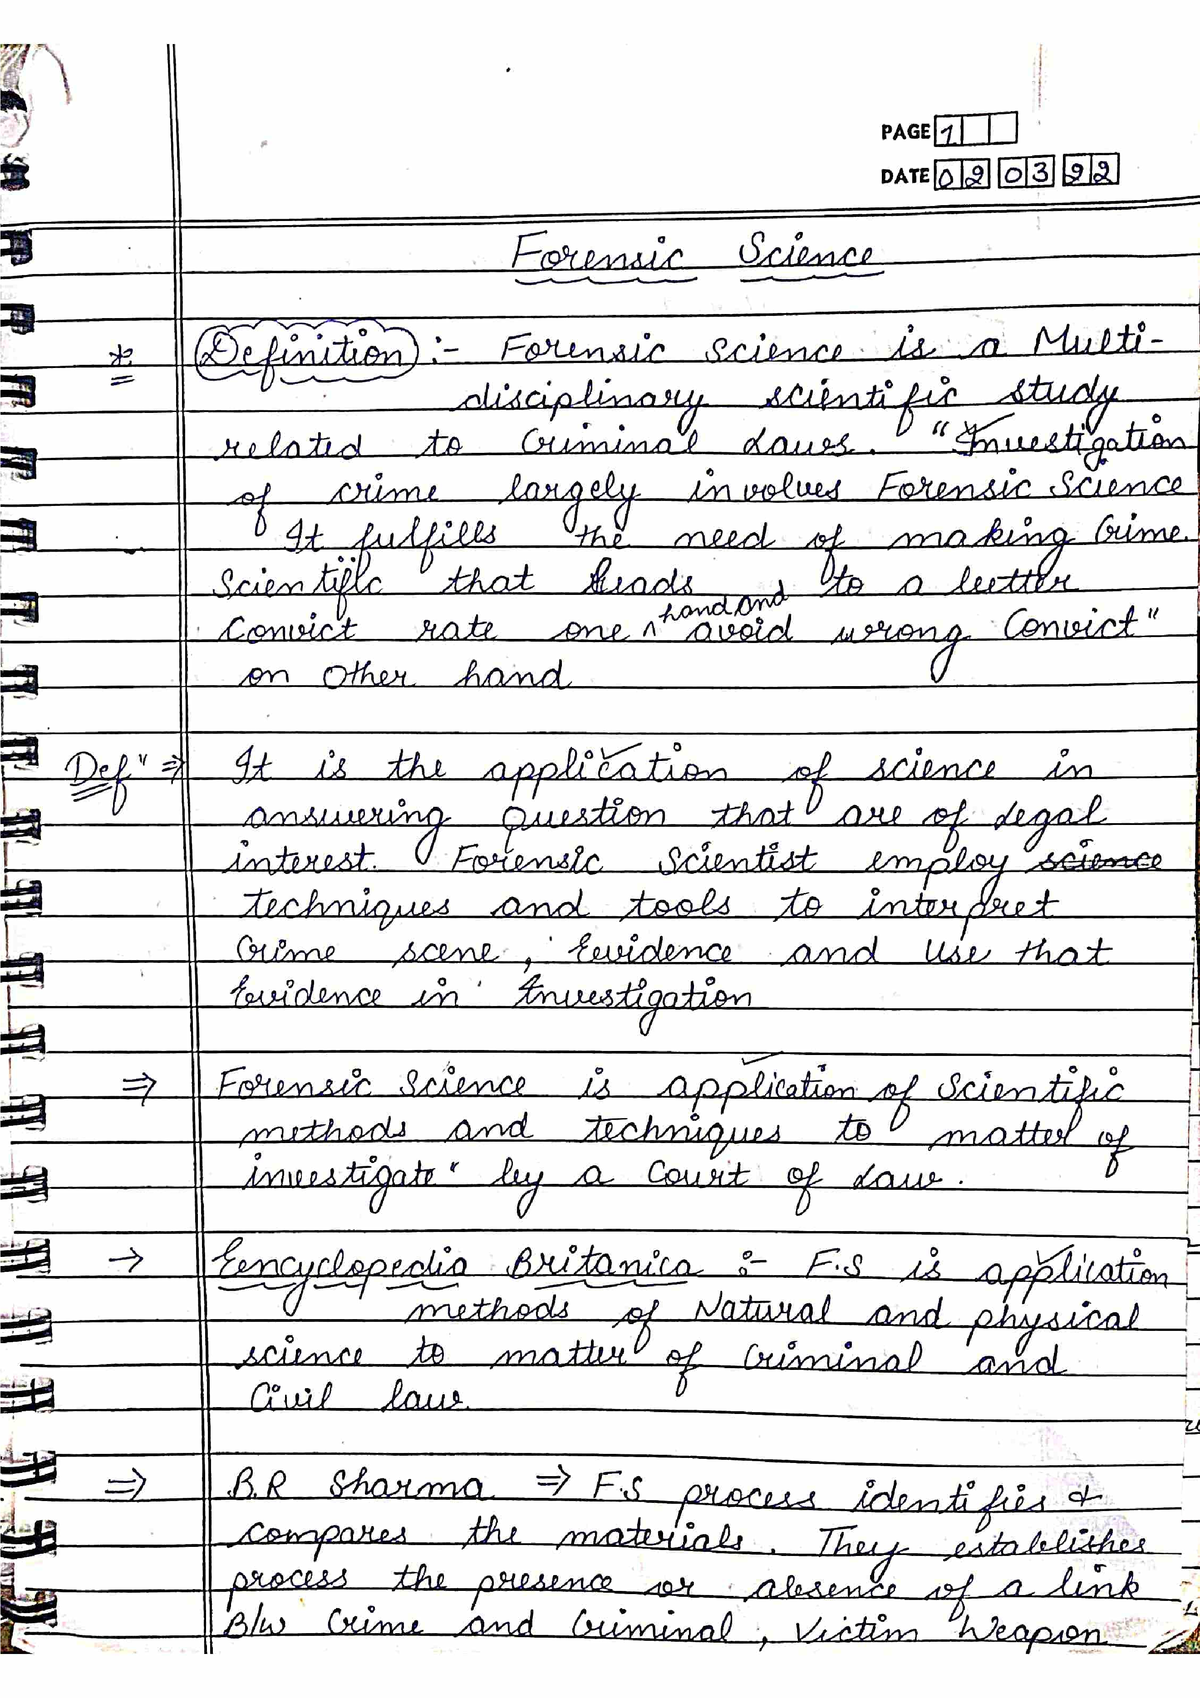 PAGE 1
DATE 02 03 22
Forensic Science
* Definition :- Forensic science is a Multi-
disciplinary scientific study
related to Criminal Laws. "Investigation
of crime largely involves Forensic Science
It fulfills the need of making Crime.
Scientific that leads to a better
hand and
Convict rate one ^ avoid wrong Convict"
on Other hand
Def" ⇒ It is the application of science in
answering Question that are of Legal
interest. Forensic Scientist employ science
techniques and tools to interpret
Crime scene, Evidence and Use that
Evidence in Investigation
⇒ Forensic Science is application of Scientific
methods and techniques to matter of
investigate" by a Court of Law.
→ Eencyclopedia Britanica :- F.S is application
methods of Natural and physical
science to matter of Criminal and
Civil law.
⇒ B.R Sharma ⇒ F.S process identifies &
compares the materials. They establishes
process the presence or absence of a link
B/w Crime and Criminal, Victim Weapon